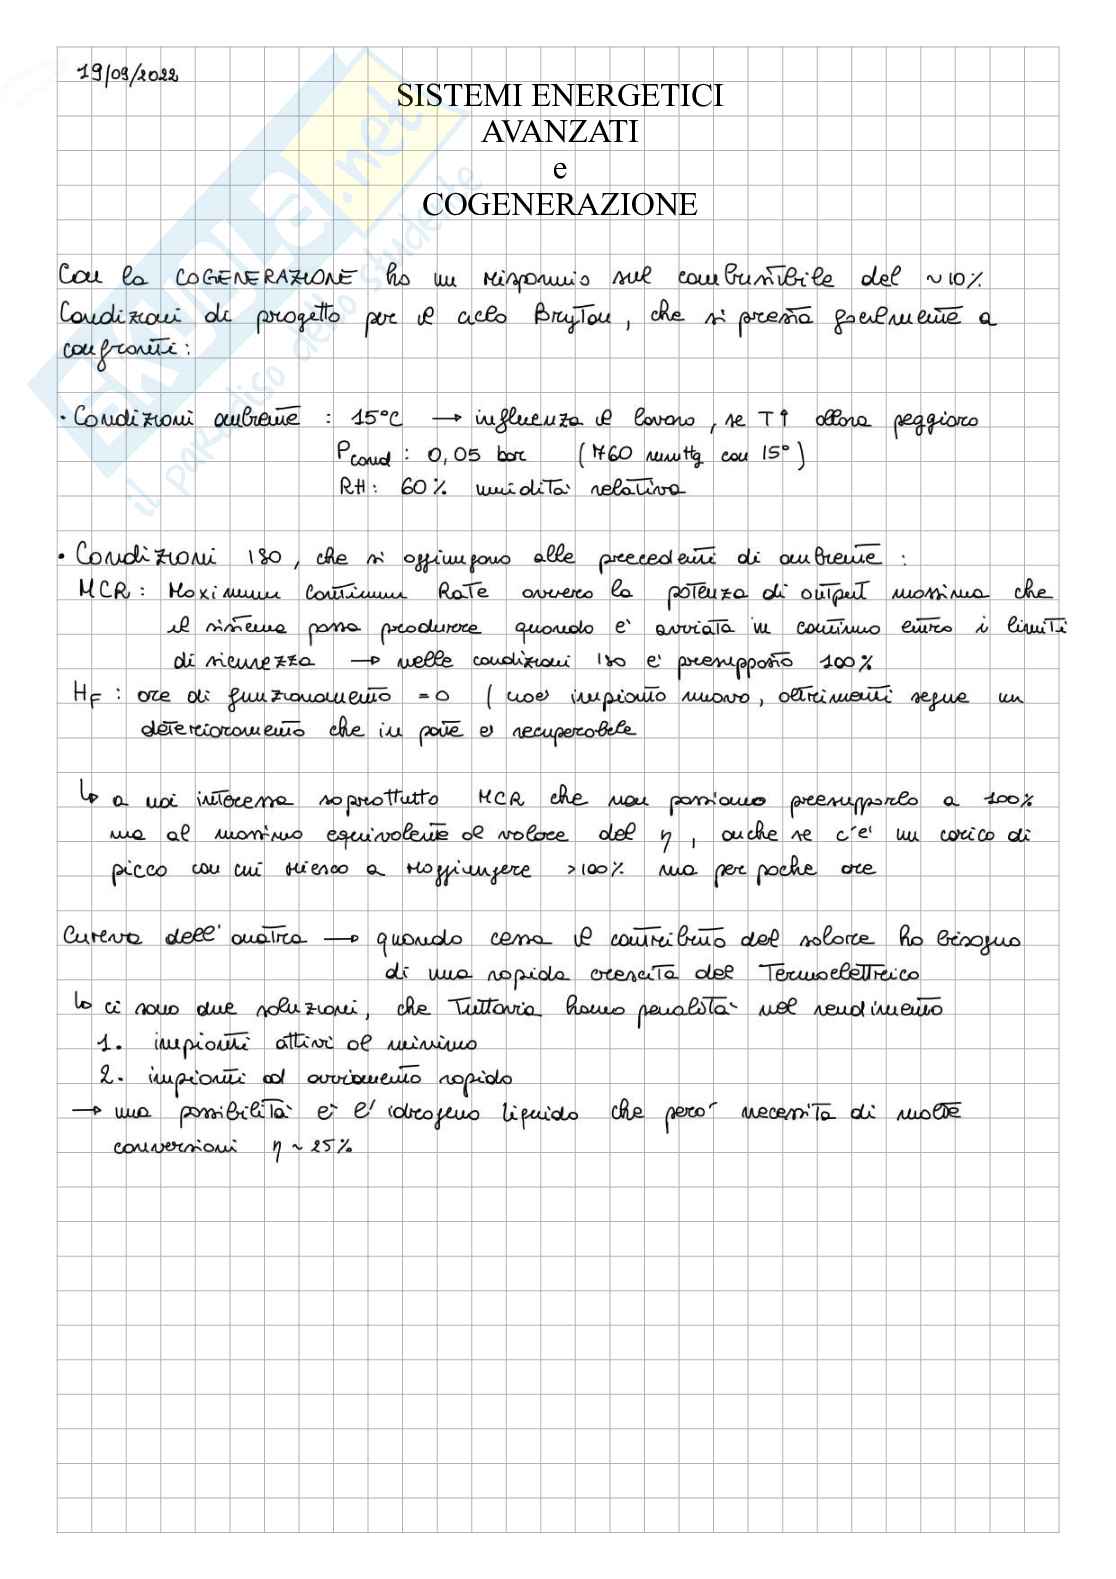 19/09/2022
SISTEMI ENERGETICI
AVANZATI
e
COGENERAZIONE
SKUOLA.net
il paradiso dello studente
Con la COGENERAZIONE ho un risparmio sul combustibile del ~10%
Condizioni di progetto per il ciclo Bryton, che si presta facilmente a
confronti:
· Condizioni ambiente : 15°C → influenza il lavoro, se T↑ allora peggioro
Pcond : 0,05 bar (760 mmHg con 15°)
RH: 60% umidità relativa
· Condizioni ISO, che si aggiungono alle precedenti di ambiente :
MCR: Maximum Continuum Rate ovvero la potenza di output massima che
il sistema possa produrre quando è avviata in continuo entro i limiti
di sicurezza → nelle condizioni ISO è presupposto 100%
HF : ore di funzionamento =0 (cioè impianto nuovo, altrimenti segue un
deterioramento che in parte è recuperabile
↳ a noi interessa soprattutto MCR che non possiamo presupporlo a 100%
ma al massimo equivalente al valore del η, anche se c'è un carico di
picco con cui riesco a raggiungere >100% ma per poche ore
Curva dell'anatra → quando cessa il contributo del solare ho bisogno
di una rapida crescita del Termoelettrico
↳ ci sono due soluzioni, che Tuttavia hanno penalità nel rendimento
1. impianti attivi al minimo
2. impianti ad avviamento rapido
→ una possibilità è l'idrogeno liquido che però necessita di molte
conversioni η ~ 25%